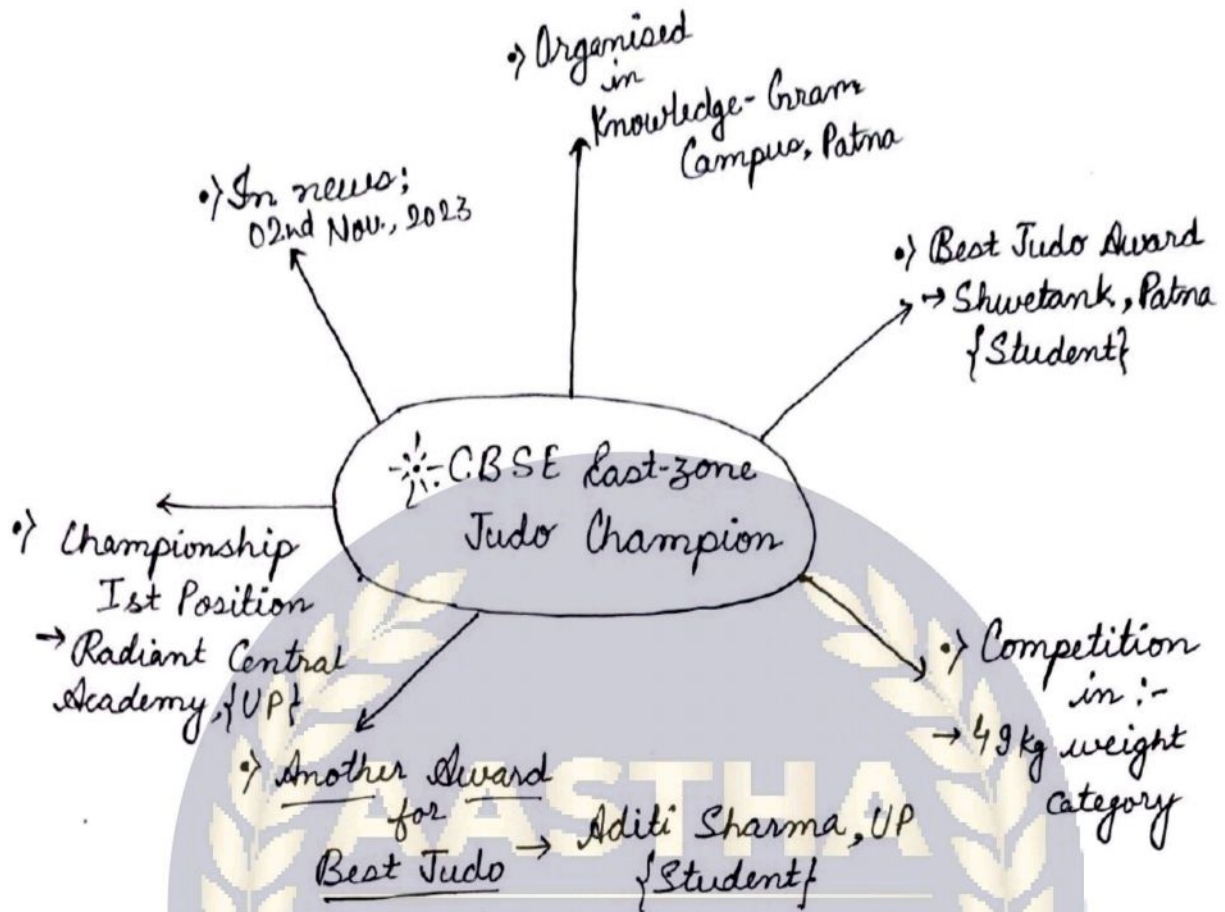 •} Organised
in
Knowledge-Gram
Campus, Patna
•} In news;
02nd Nov., 2023
•} Best Judo Award
→ Shwetank, Patna
{Student}
CBSE East-zone
Judo Champion
•} Championship
Ist Position
→ Radiant Central
Academy, {UP}
•} Competition
in :-
→ 49kg weight
category
•} Another Award
for
Best Judo → Aditi Sharma, UP
{Student}
AASTHA